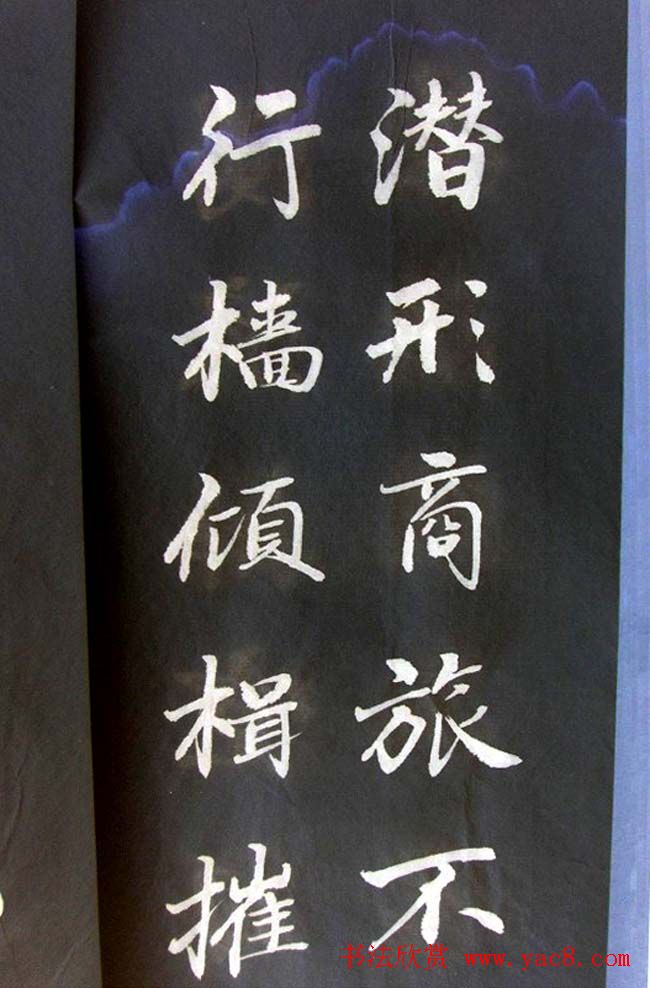 潜形商旅不
行檣傾楫摧
书法欣赏 www.yac8.com